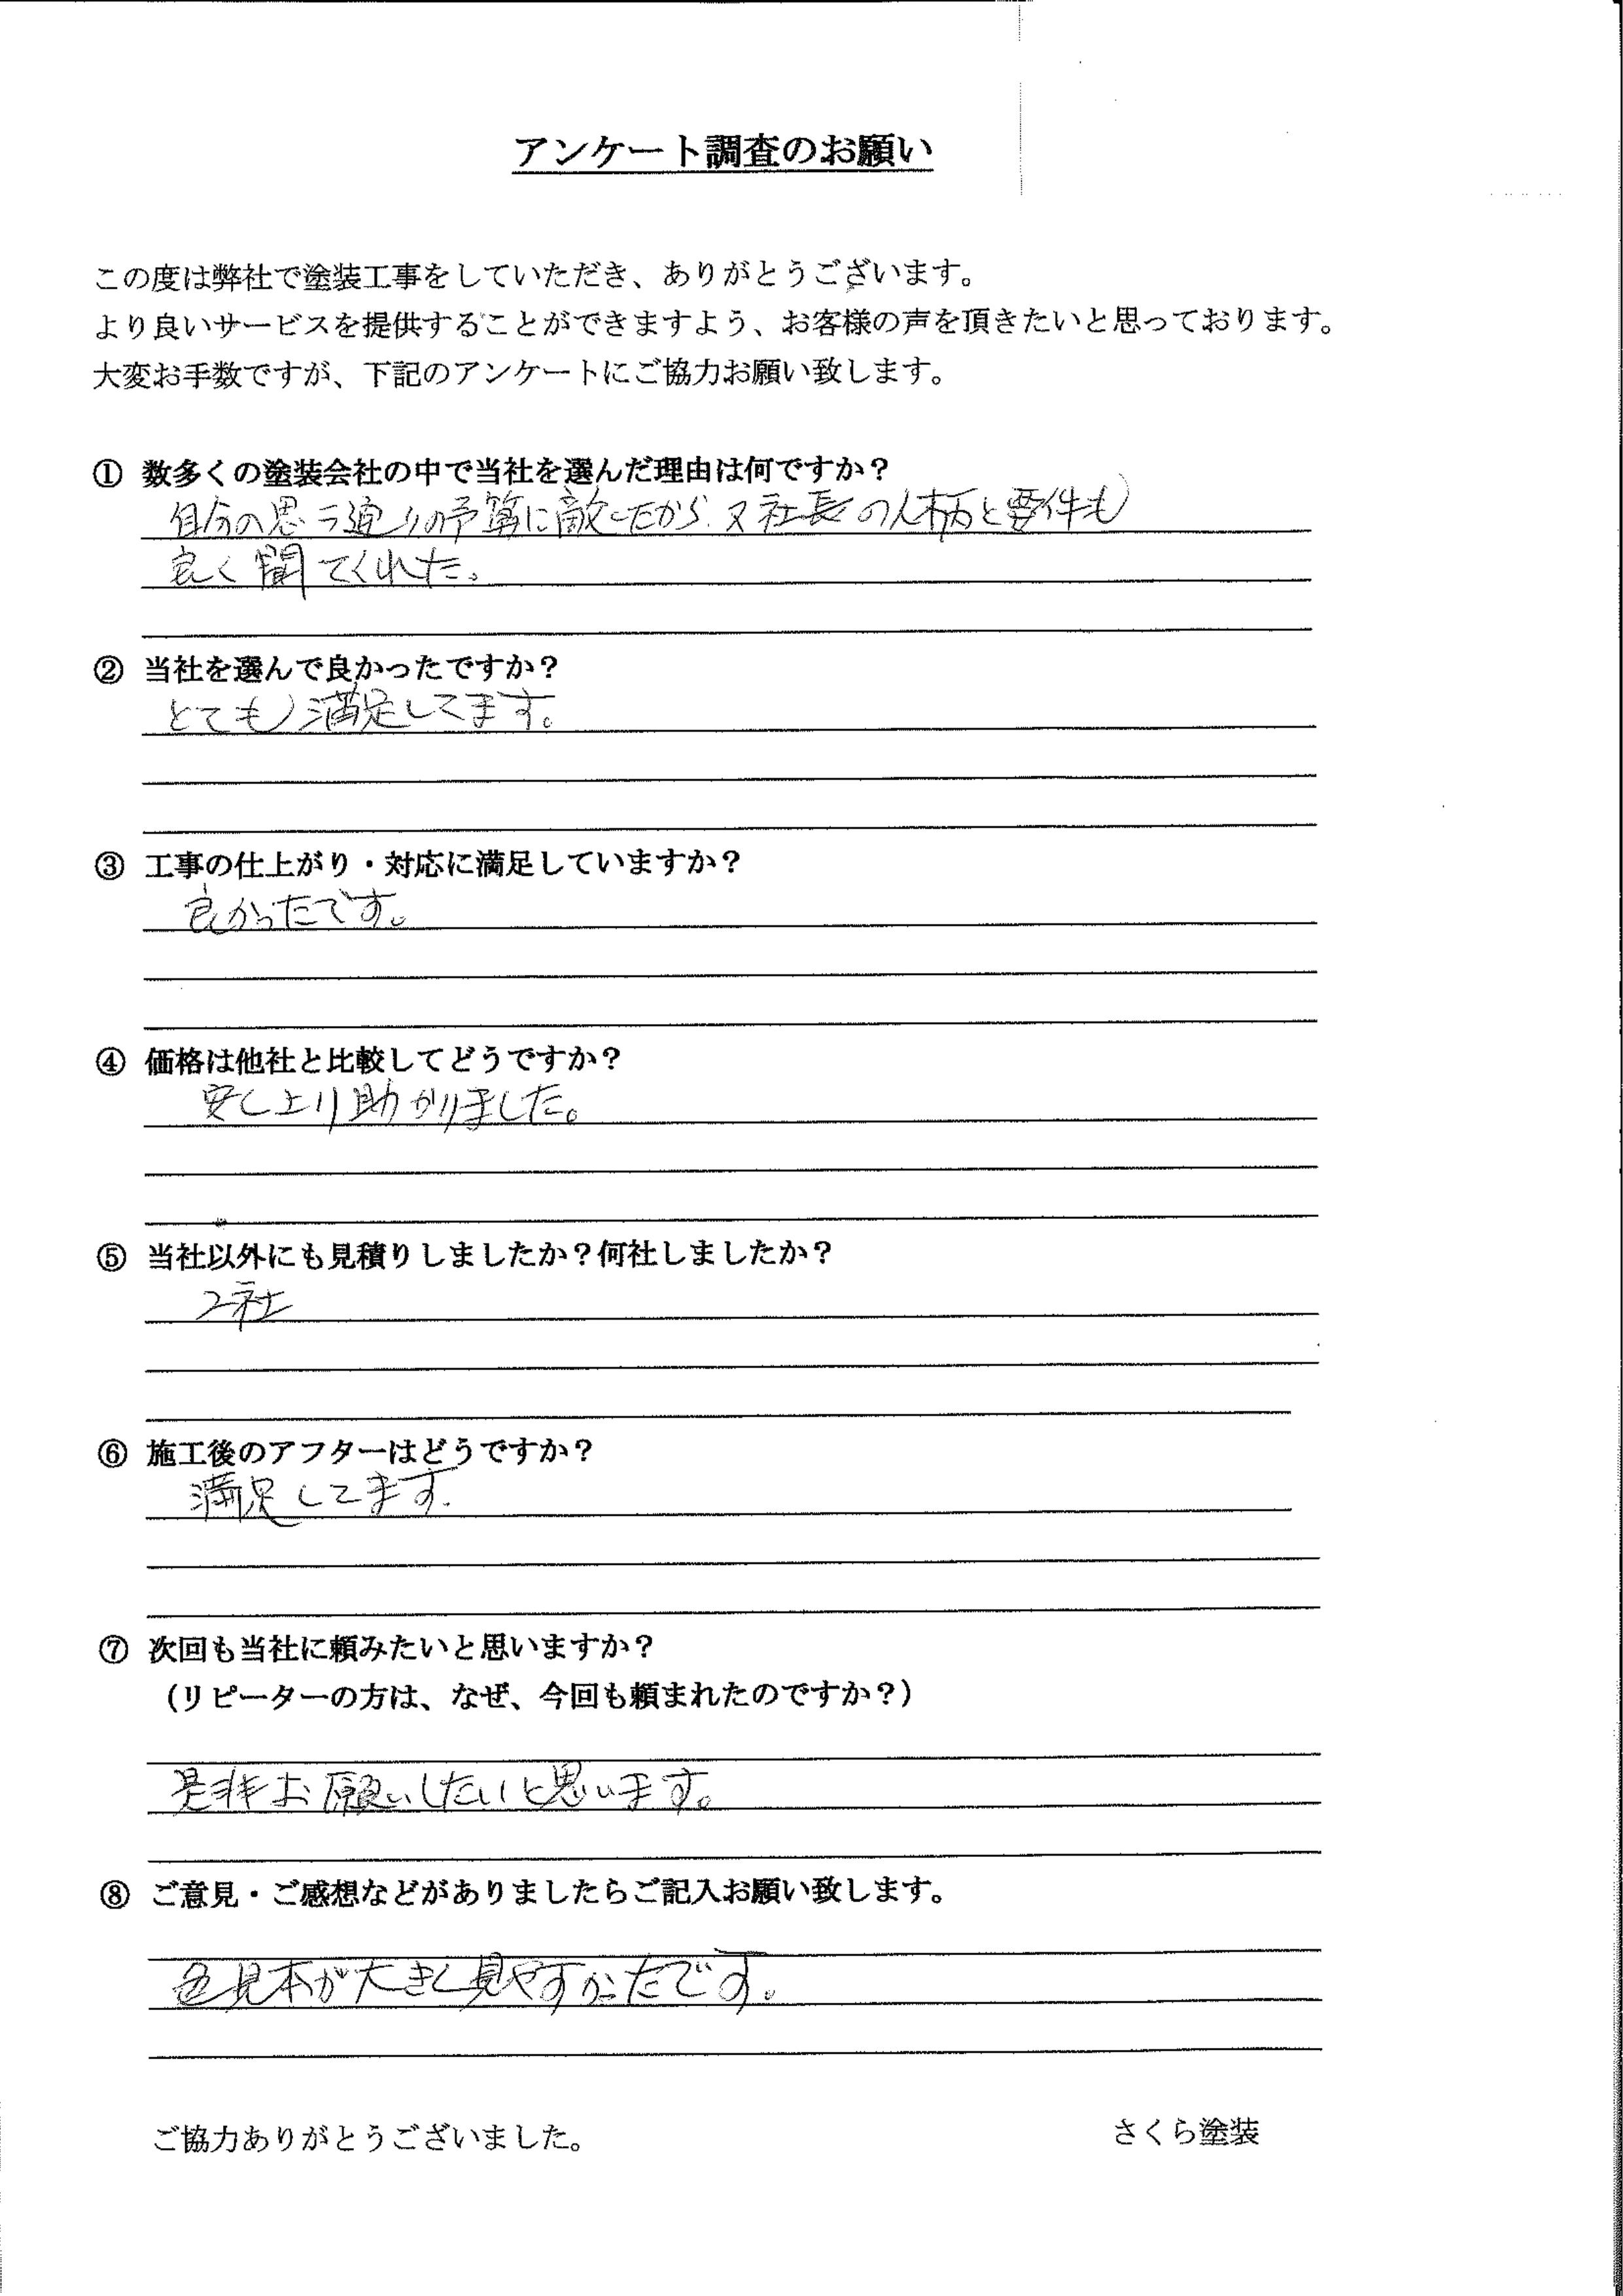 アンケート調査のお願い
この度は弊社で塗装工事をしていただき、ありがとうございます。
より良いサービスを提供することができますよう、お客様の声を頂きたいと思っております。
大変お手数ですが、下記のアンケートにご協力お願い致します。
① 数多くの塗装会社の中で当社を選んだ理由は何ですか？
自分の思う通りの予算に敵したから、又社長の人柄と要件も
良く聞てくれた。
② 当社を選んで良かったですか？
とても満足してます。
③ 工事の仕上がり・対応に満足していますか？
良かったです。
④ 価格は他社と比較してどうですか？
安く上り助かりました。
⑤ 当社以外にも見積りしましたか？何社しましたか？
2社
⑥ 施工後のアフターはどうですか？
満足してます.
⑦ 次回も当社に頼みたいと思いますか？
（リピーターの方は、なぜ、今回も頼まれたのですか？）
是非お願いしたいと思います。
⑧ ご意見・ご感想などがありましたらご記入お願い致します。
色見本が大きく見やすかったです。
ご協力ありがとうございました。
さくら塗装